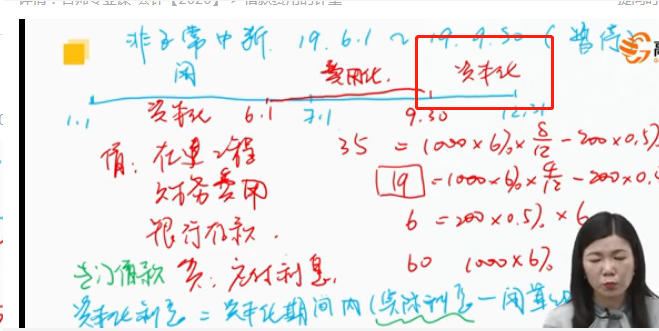 详情：名师专业课-会计【2020】-> 借款费用的计量
非正常中断. 19.6.1 ~ 19.9.30 (暂停
闲 费用化 资本化
资本化
1.1 6.1 7.1 9.30 12.31
借：在建工程 35 = (1000×6%×8/12 - 200×0.5%
财务费用 19 = (1000×6%×4/12 - 200×0.
银行存款. 6 = 200×0.5%×6
专门借款 贷：应付利息. 60 1000×6%
资本化利息 = 资本化期间内(实际利息 - 闲